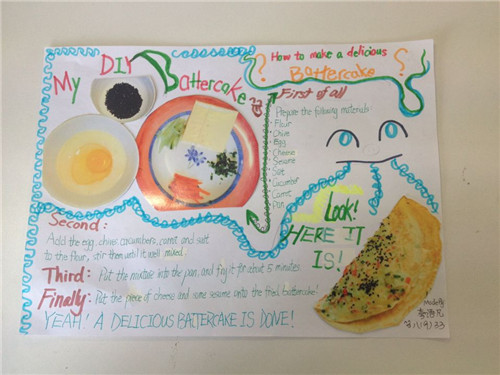 My DIY Battercake
How to make a delicious
Battercake
First of all
Prepare the following materials:
Flour
Chive
Egg
Cheese
Sesame
Salt
Cucumber
Carrot
Pan
Second:
Add the egg, chives, cucumbers, carrot, and salt
to the flour, stir them until it well mixed.
Third: Put the mixture into the pan, and fry it for about 5 minutes.
Finally: Put the piece of cheese and some sesame onto the fried battercake!
YEAH! A DELICIOUS BATTERCAKE IS DONE!
Look!
HERE IT
IS!
Made By